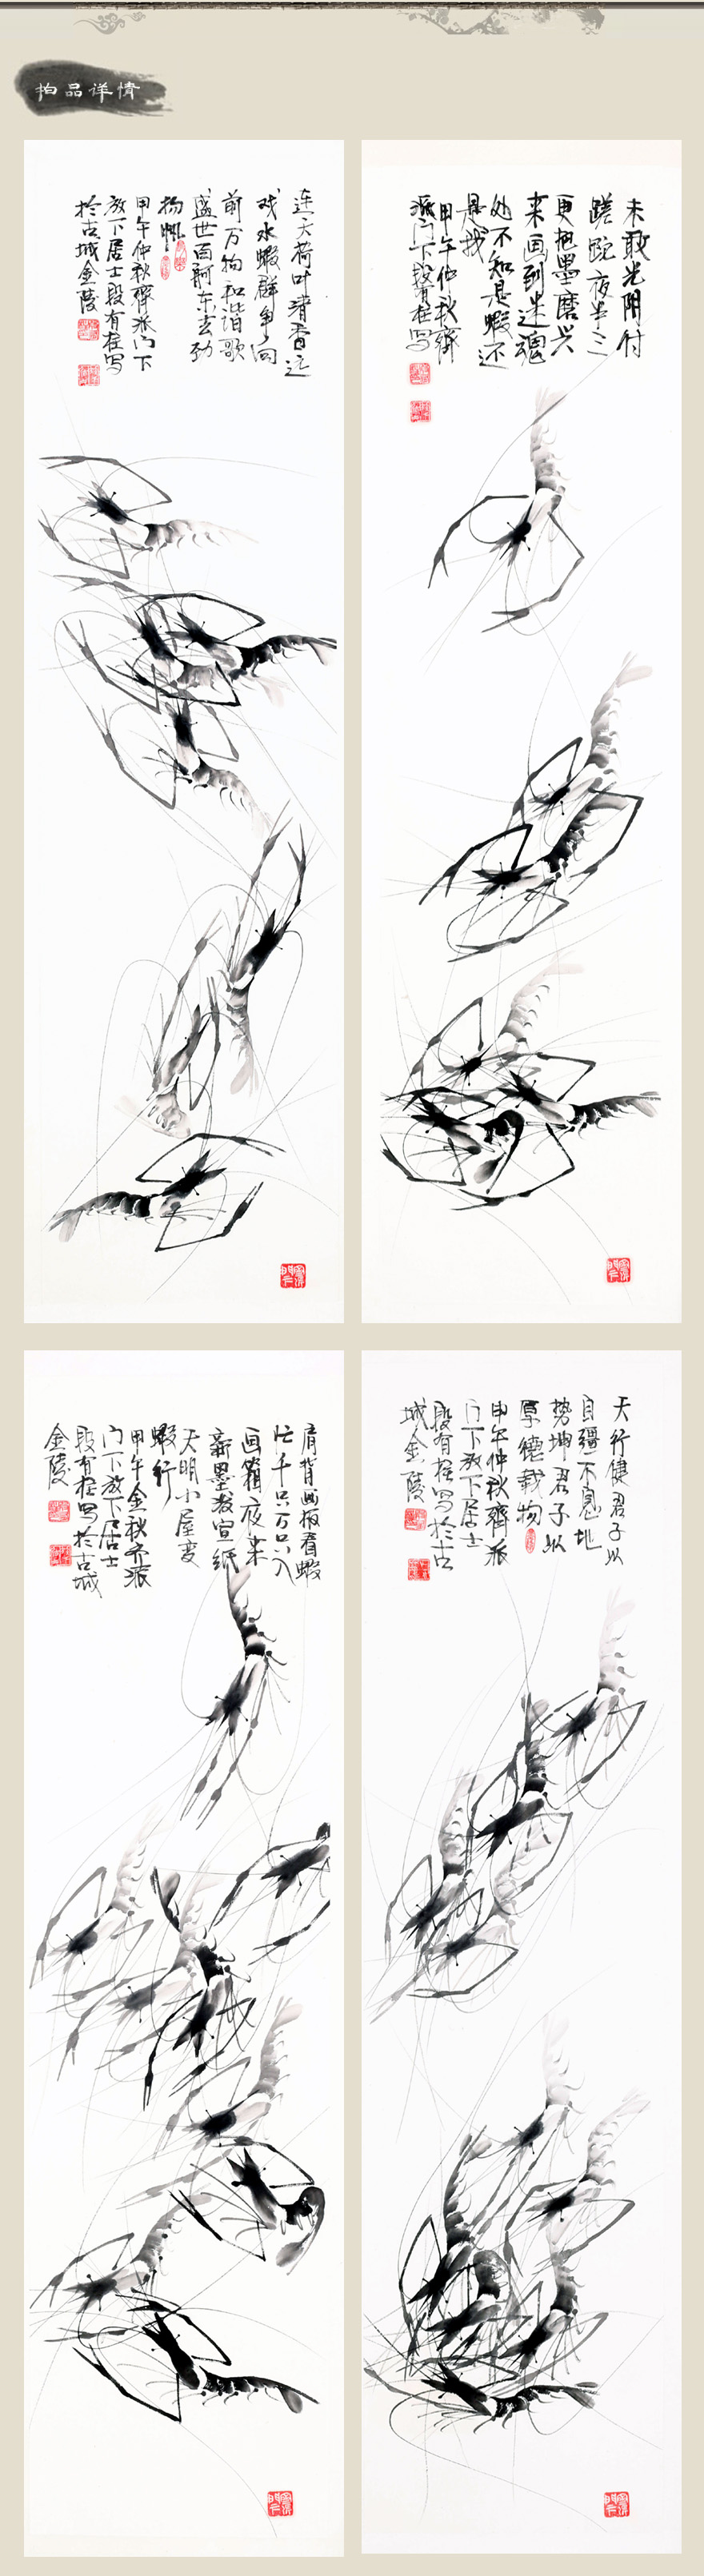 拍品详情
连天荷叶清香远
戏水虾群争向
前万物和谐歌
盛世百舸东去劲
扬帆
甲午仲秋齐派门下
放下居士段有柱写
於古城金陵
未敢光阴付
蹉跎夜半三
更把墨磨兴
来画到迷魂
处不知是虾还
是我
甲午仲秋齐
派门下段有柱写
肩背画板看虾
忙千只万只入
画箱夜来
新墨泼宣纸
天明小屋变
虾行
甲午金秋齐派
门下放下居士
段有柱写於古城
金陵
天行健君子以
自疆不息地
势坤君子以
厚德载物
甲午仲秋齐派
门下放下居士
段有柱写於古
城金陵